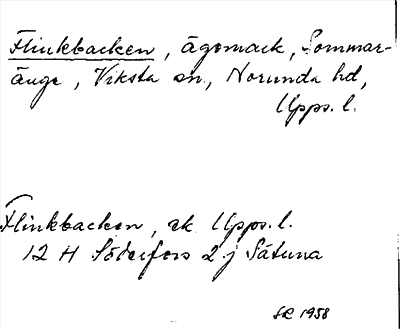 Flinkbacken, ägomark, Sommar-
änge, Viksta sn., Norunda hd,
Upps. l.
Flinkbacken, ek. Upps. l.
12 H Söderfors 2 j Sätuna
SR 1958